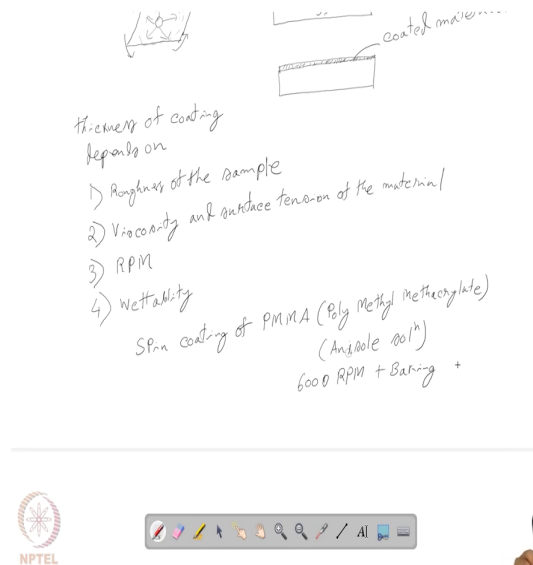 coated mate
thickness of coating
depends on
1) Roughness of the sample
2) Viscosity and surface tension of the material
3) RPM
4) Wettablity
Spin coating of PMMA (Poly Methyl Methacrylate)
(Anisole solⁿ)
6000 RPM + Baking +
AI
NPTEL